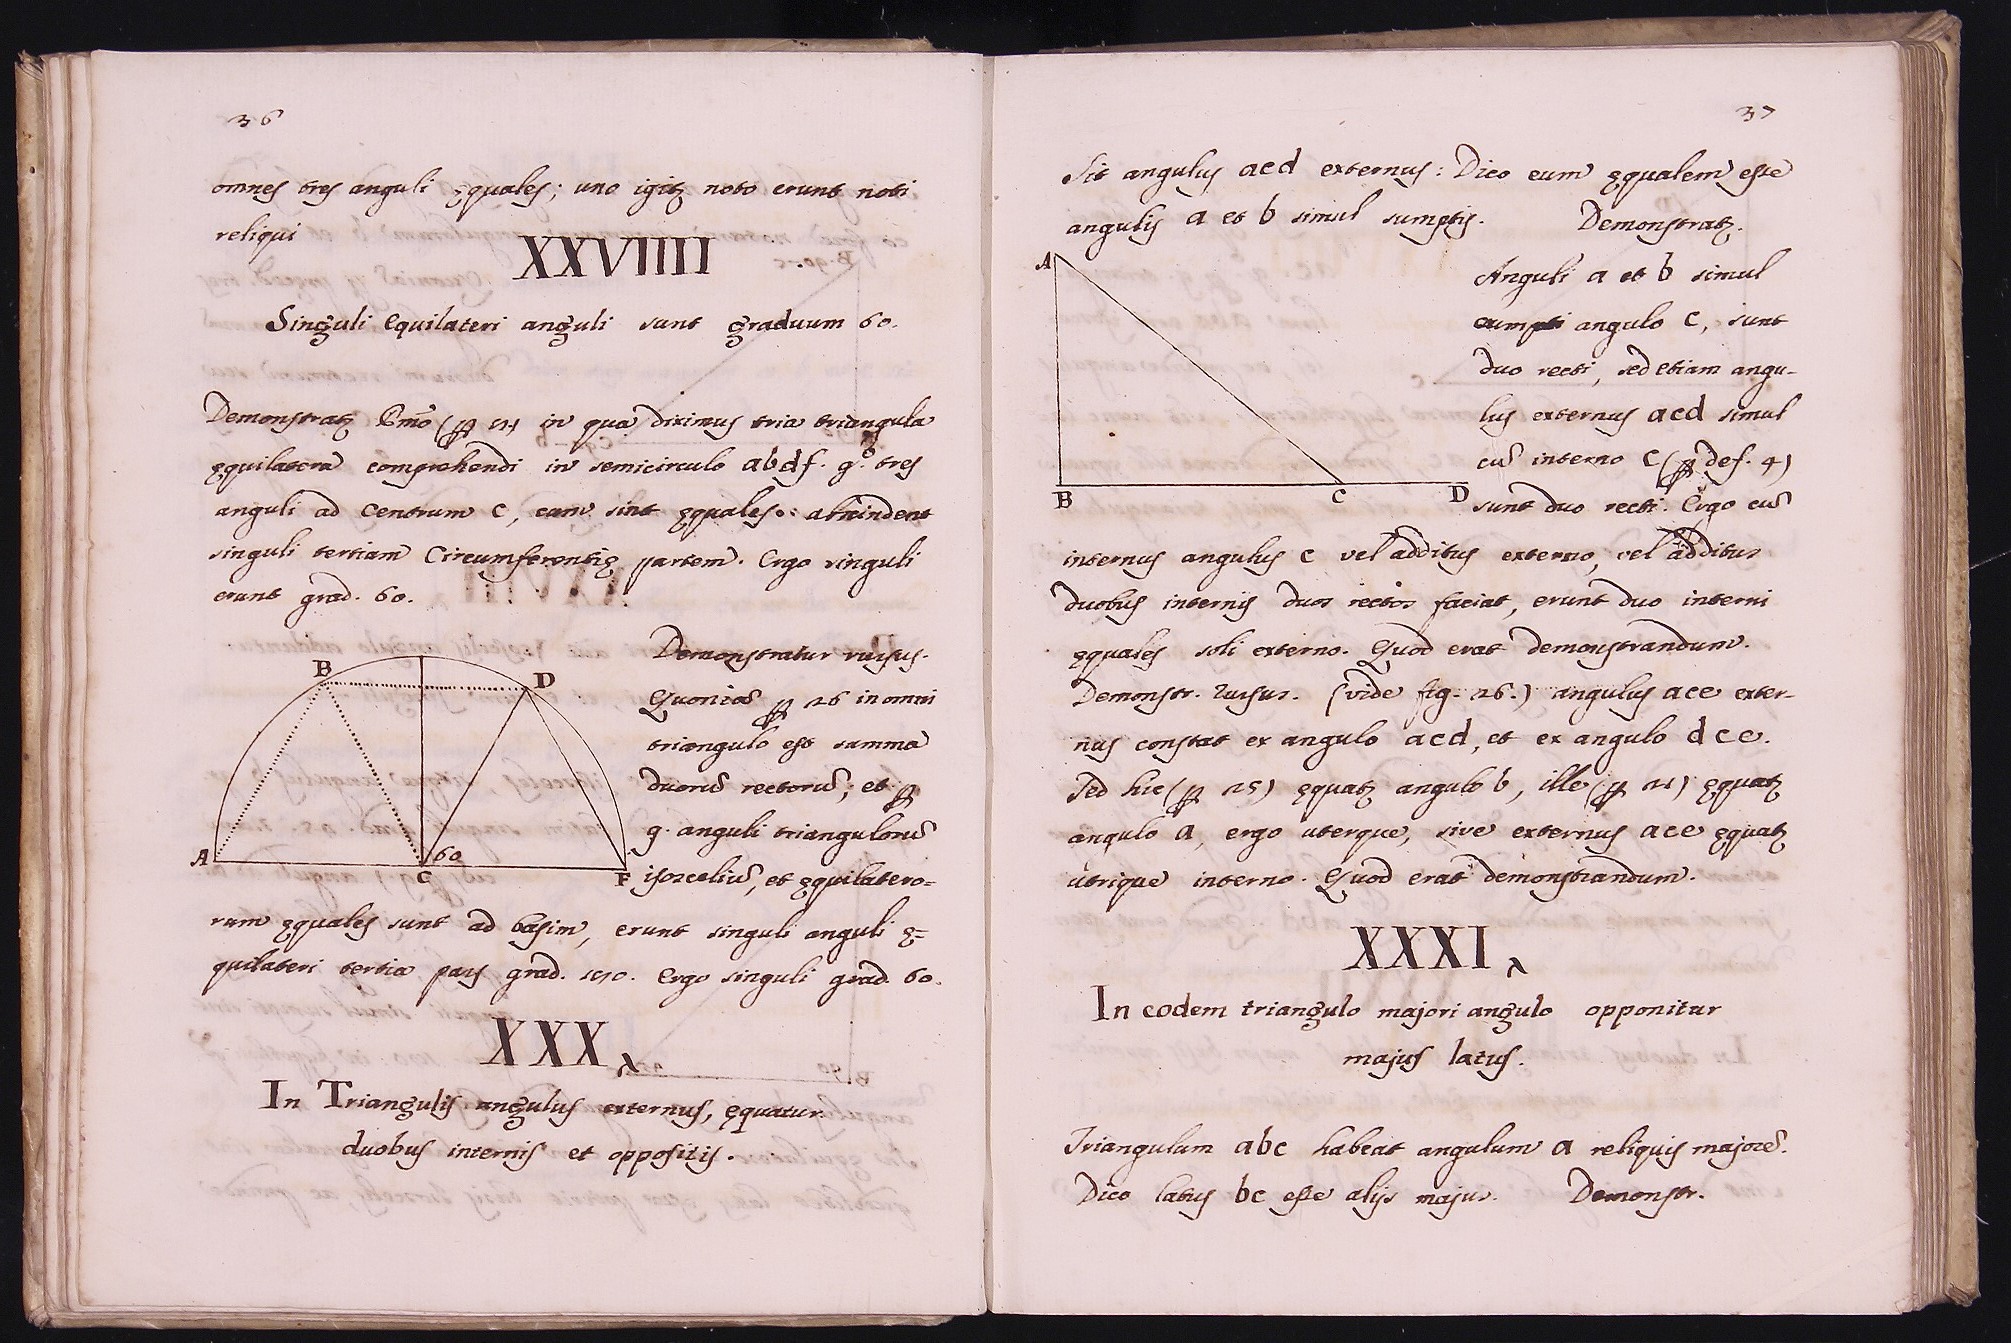 36
omnes tres anguli ęquales; uno igitꝫ noto erunt noti
reliqui
XXVIIII
Singuli equilateri anguli sunt graduum 60.
Demonstratꝫ Pmo (ꝑ 21) in qua diximus tria triangula
ęquilatera comprehendi in semicirculo abdf. g.º tres
anguli ad centrum c, cum sint ęquales: abscindent
singuli tertiam circumferentię partem. Ergo singuli
erunt grad. 60.
Demonstratur rursus.
Quoniā ꝑ 26 in omni
triangulo est summa
duorū rectorū; et ꝑ
9. anguli triangulorū
isosceliū, et ęquilatero=
rum ęquales sunt ad basim, erunt singuli anguli ę=
quilateri tertia pars grad. 180. Ergo singuli grad. 60.
B
D
A
60
C
F
XXX
In Triangulis angulus externus, ęquatur
duobus internis et oppositis.
37
Sit angulus acd externus: Dico eum ęqualem esse
angulis a et b simul sumptis. Demonstratꝫ.
Anguli a et b simul
cum angulo c, sunt
duo recti, sed etiam angu-
lus externus acd simul
cū interno c (ꝑ def. 4)
sunt duo recti. Ergo cū
A
B
C
D
internus angulus c vel additus externo, vel additus
duobus internis duos rectos faciat, erunt duo interni
ęquales soli externo. Quod erat demonstrandum.
Demonstr. rursus. (vide fig. 26.) angulus ace exter-
nus constat ex angulo acd, et ex angulo dce.
Sed hic (ꝑ 25) ęquatꝫ angulo b, ille (ꝑ 21) ęquatꝫ
angulo a, ergo uterque, sive externus ace ęquatꝫ
utrique interno. Quod erat demonstrandum.
XXXI
In eodem triangulo majori angulo opponitur
majus latus.
Triangulum abc habeat angulum a reliquis majorē.
Dico latus bc esse alijs majus. Demonstr.